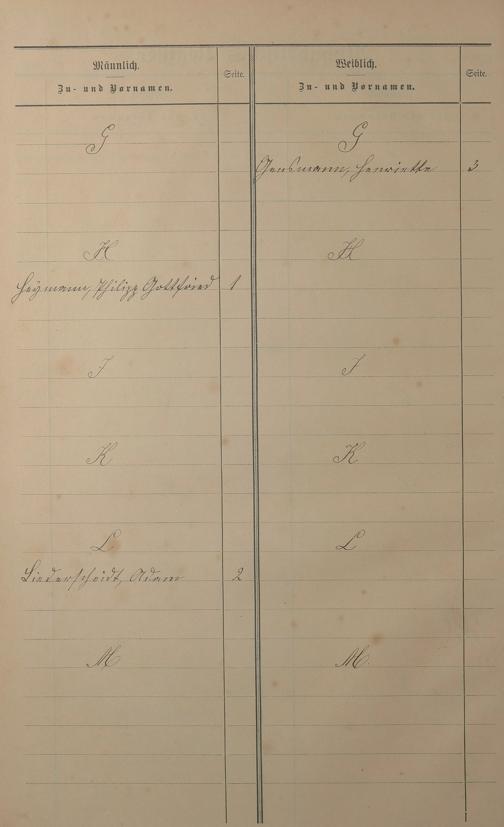 Männlich.
Zu- und Vornamen.
Seite.
Weiblich.
Zu- und Vornamen.
Seite.
G
G
Gensmann, Henriette 3
H
H
Heymann, Philipp Gottfried 1
I
I
K
K
L
L
Liederscheidt, Adam 2
M
M